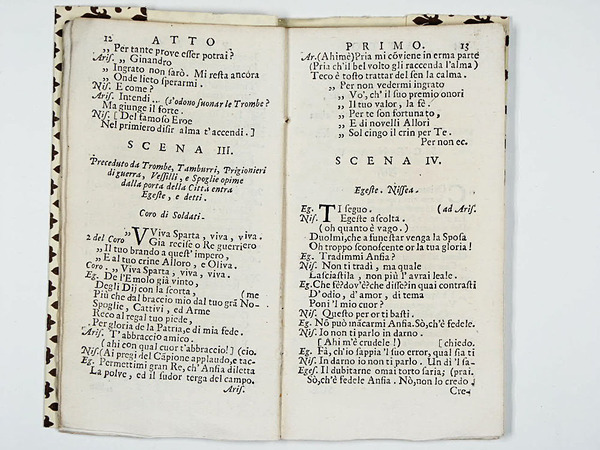 12 ATTO
„ Per tante prove esser potrai?
Aris. „ Ginandro
„ Ingrato non sarò. Mi resta ancóra
„ Onde lieto sperarmi.
Nis. E come?
Aris. Intendi... (s'odono suonar le Trombe?
Ma giunge il forte.
Nis. [Del famoso Eroe
Nel primiero disir alma t'accendi.]
SCENA III.
Preceduto da Trombe, Tamburri, Prigionieri
di guerra, Vessilli, e Spoglie opime
dalla porta della Città entra
Egeste, e detti.
Coro di Soldati.
„ VViva Sparta, viva, viva.
2 del Coro Già recise o Re guerriero
„ Il tuo brando a quest' impero,
„ E al tuo crine Alloro, e Oliva.
Coro. „ Viva Sparta, viva, viva.
Eg. De l'Emolo già vinto,
Degli Dij con la scorta, (me
Più che dal braccio mio dal tuo grã No-
Spoglie, Cattivi, ed Arme
Reco al regal tuo piede,
Per gloria de la Patria, e di mia fede.
Aris. T'abbraccio amico.
(ahi con qual cuor t'abbraccio!] (cio.
Nis. (Ai pregi del Cãpione applaudo, e tac-
Eg. Permettimi gran Re, ch'Ansia diletta
La polve, ed il sudor terga del campo.
Aris.
PRIMO. 13
Ar. (Ahimè) Pria mi cõviene in erma parte
(Pria ch'il bel volto gli raccenda l'alma)
Teco è tosto trattar del sen la calma.
„ Per non vedermi ingrato
„ Vo', ch'il suo premio onori
„ Il tuo valor, la fè.
„ Per te son fortunato,
„ E di novelli Allori
„ Sol cingo il crin per Te.
Per non ec.
SCENA IV.
Egeste. Nissea.
Eg. TI seguo. (ad Aris.
Nis. Egeste ascolta.
(oh quanto è vago.)
Duolmi, che a funestar venga la Sposa
Oh troppo sconoscente or la tua gloria!
Eg. Tradimmi Ansia?
Nis. Non ti tradì, ma quale
Lasciastila, non più l'avrai leale.
Eg. Che fè? dov'è? che disse? in quai contrasti
D'odio, d'amor, di tema
Poni 'l mio cuor?
Nis. Questo per or ti basti.
Eg. Nò può inãcarmi Ansia. Sò, ch'è fedele.
Nis. Io non ti parlo in darno.
[Ahi m'è crudele!) [chiedo.
Eg. Fà, ch'io sappia 'l suo error, qual sia ti
Nis. In darno io non ti parlo. Un dì 'l sa-
Eges. Il dubitarne omai torto saria; (prai.
Sò, ch'è fedele Ansia. Nò, non lo credo
Cre-